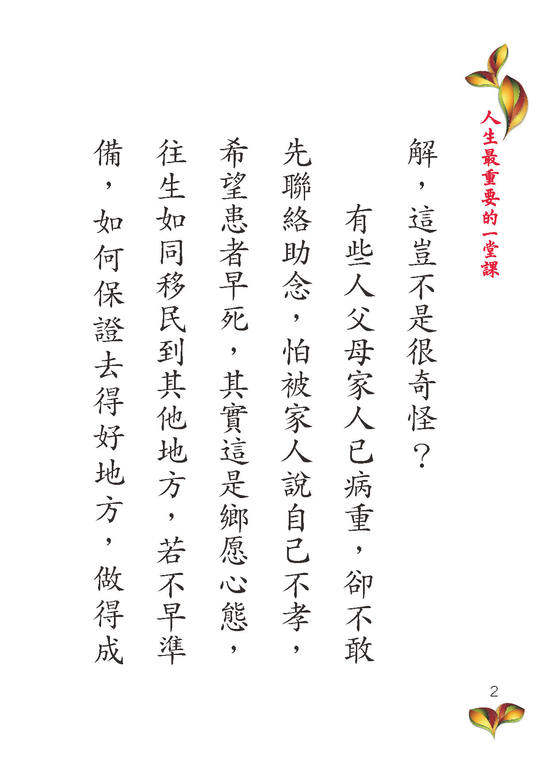 人生最重要的一堂課
解，這豈不是很奇怪？
有些人父母家人已病重，卻不敢
先聯絡助念，怕被家人說自己不孝，
希望患者早死，其實這是鄉愿心態，
往生如同移民到其他地方，若不早準
備，如何保證去得好地方，做得成
2